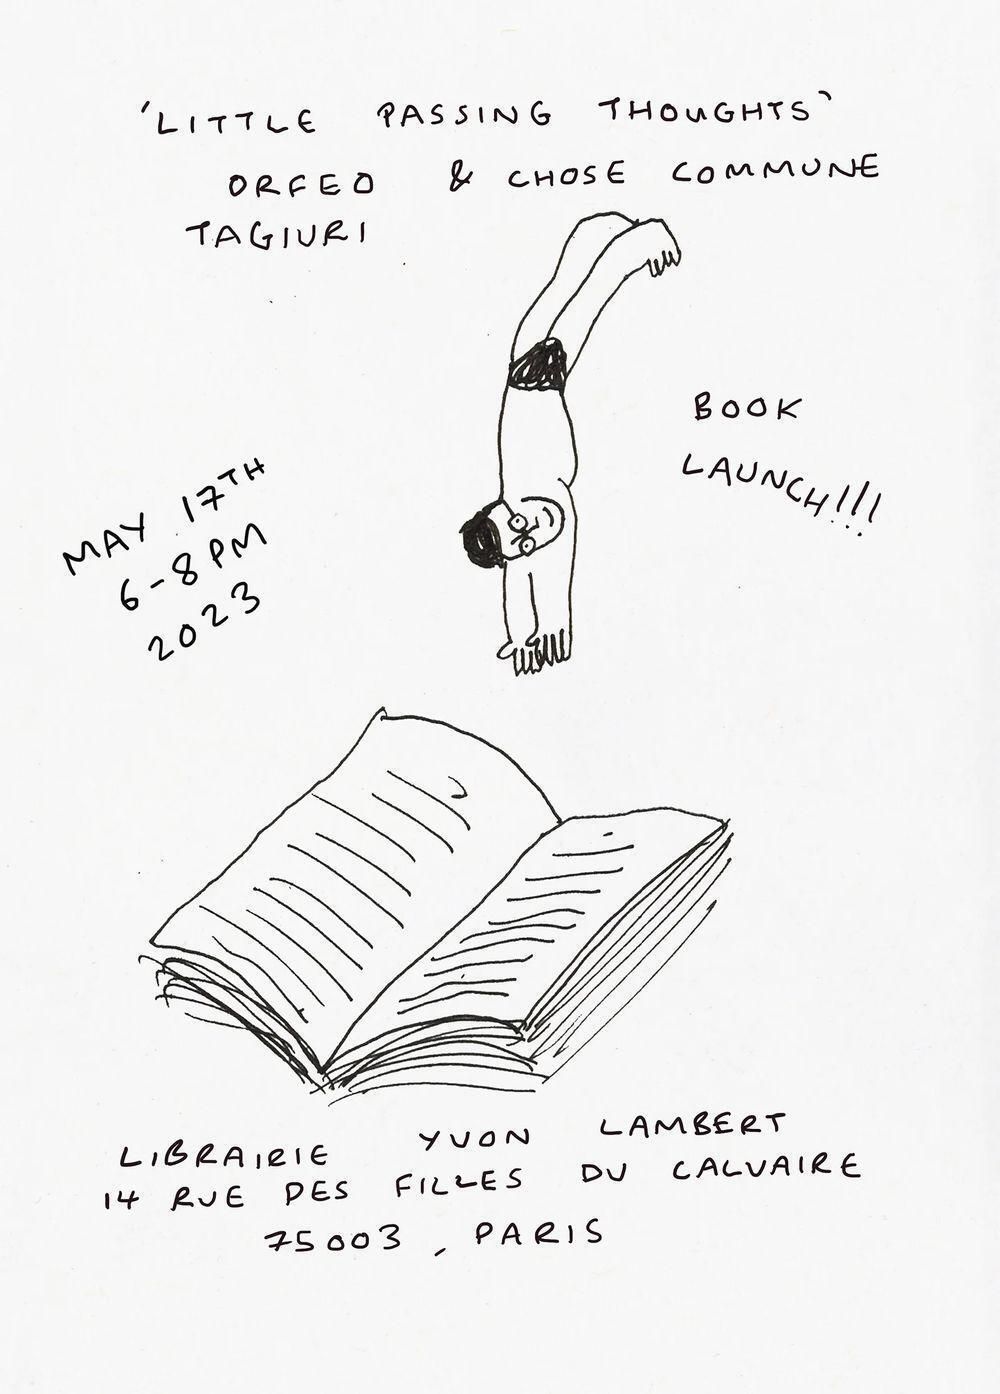 'LITTLE PASSING THOUGHTS'
ORFEO & CHOSE COMMUNE
TAGIURI
BOOK
LAUNCH!!!
MAY 17TH
6-8 PM
2023
LIBRAIRIE YVON LAMBERT
14 RUE DES FILLES DU CALVAIRE
75003, PARIS